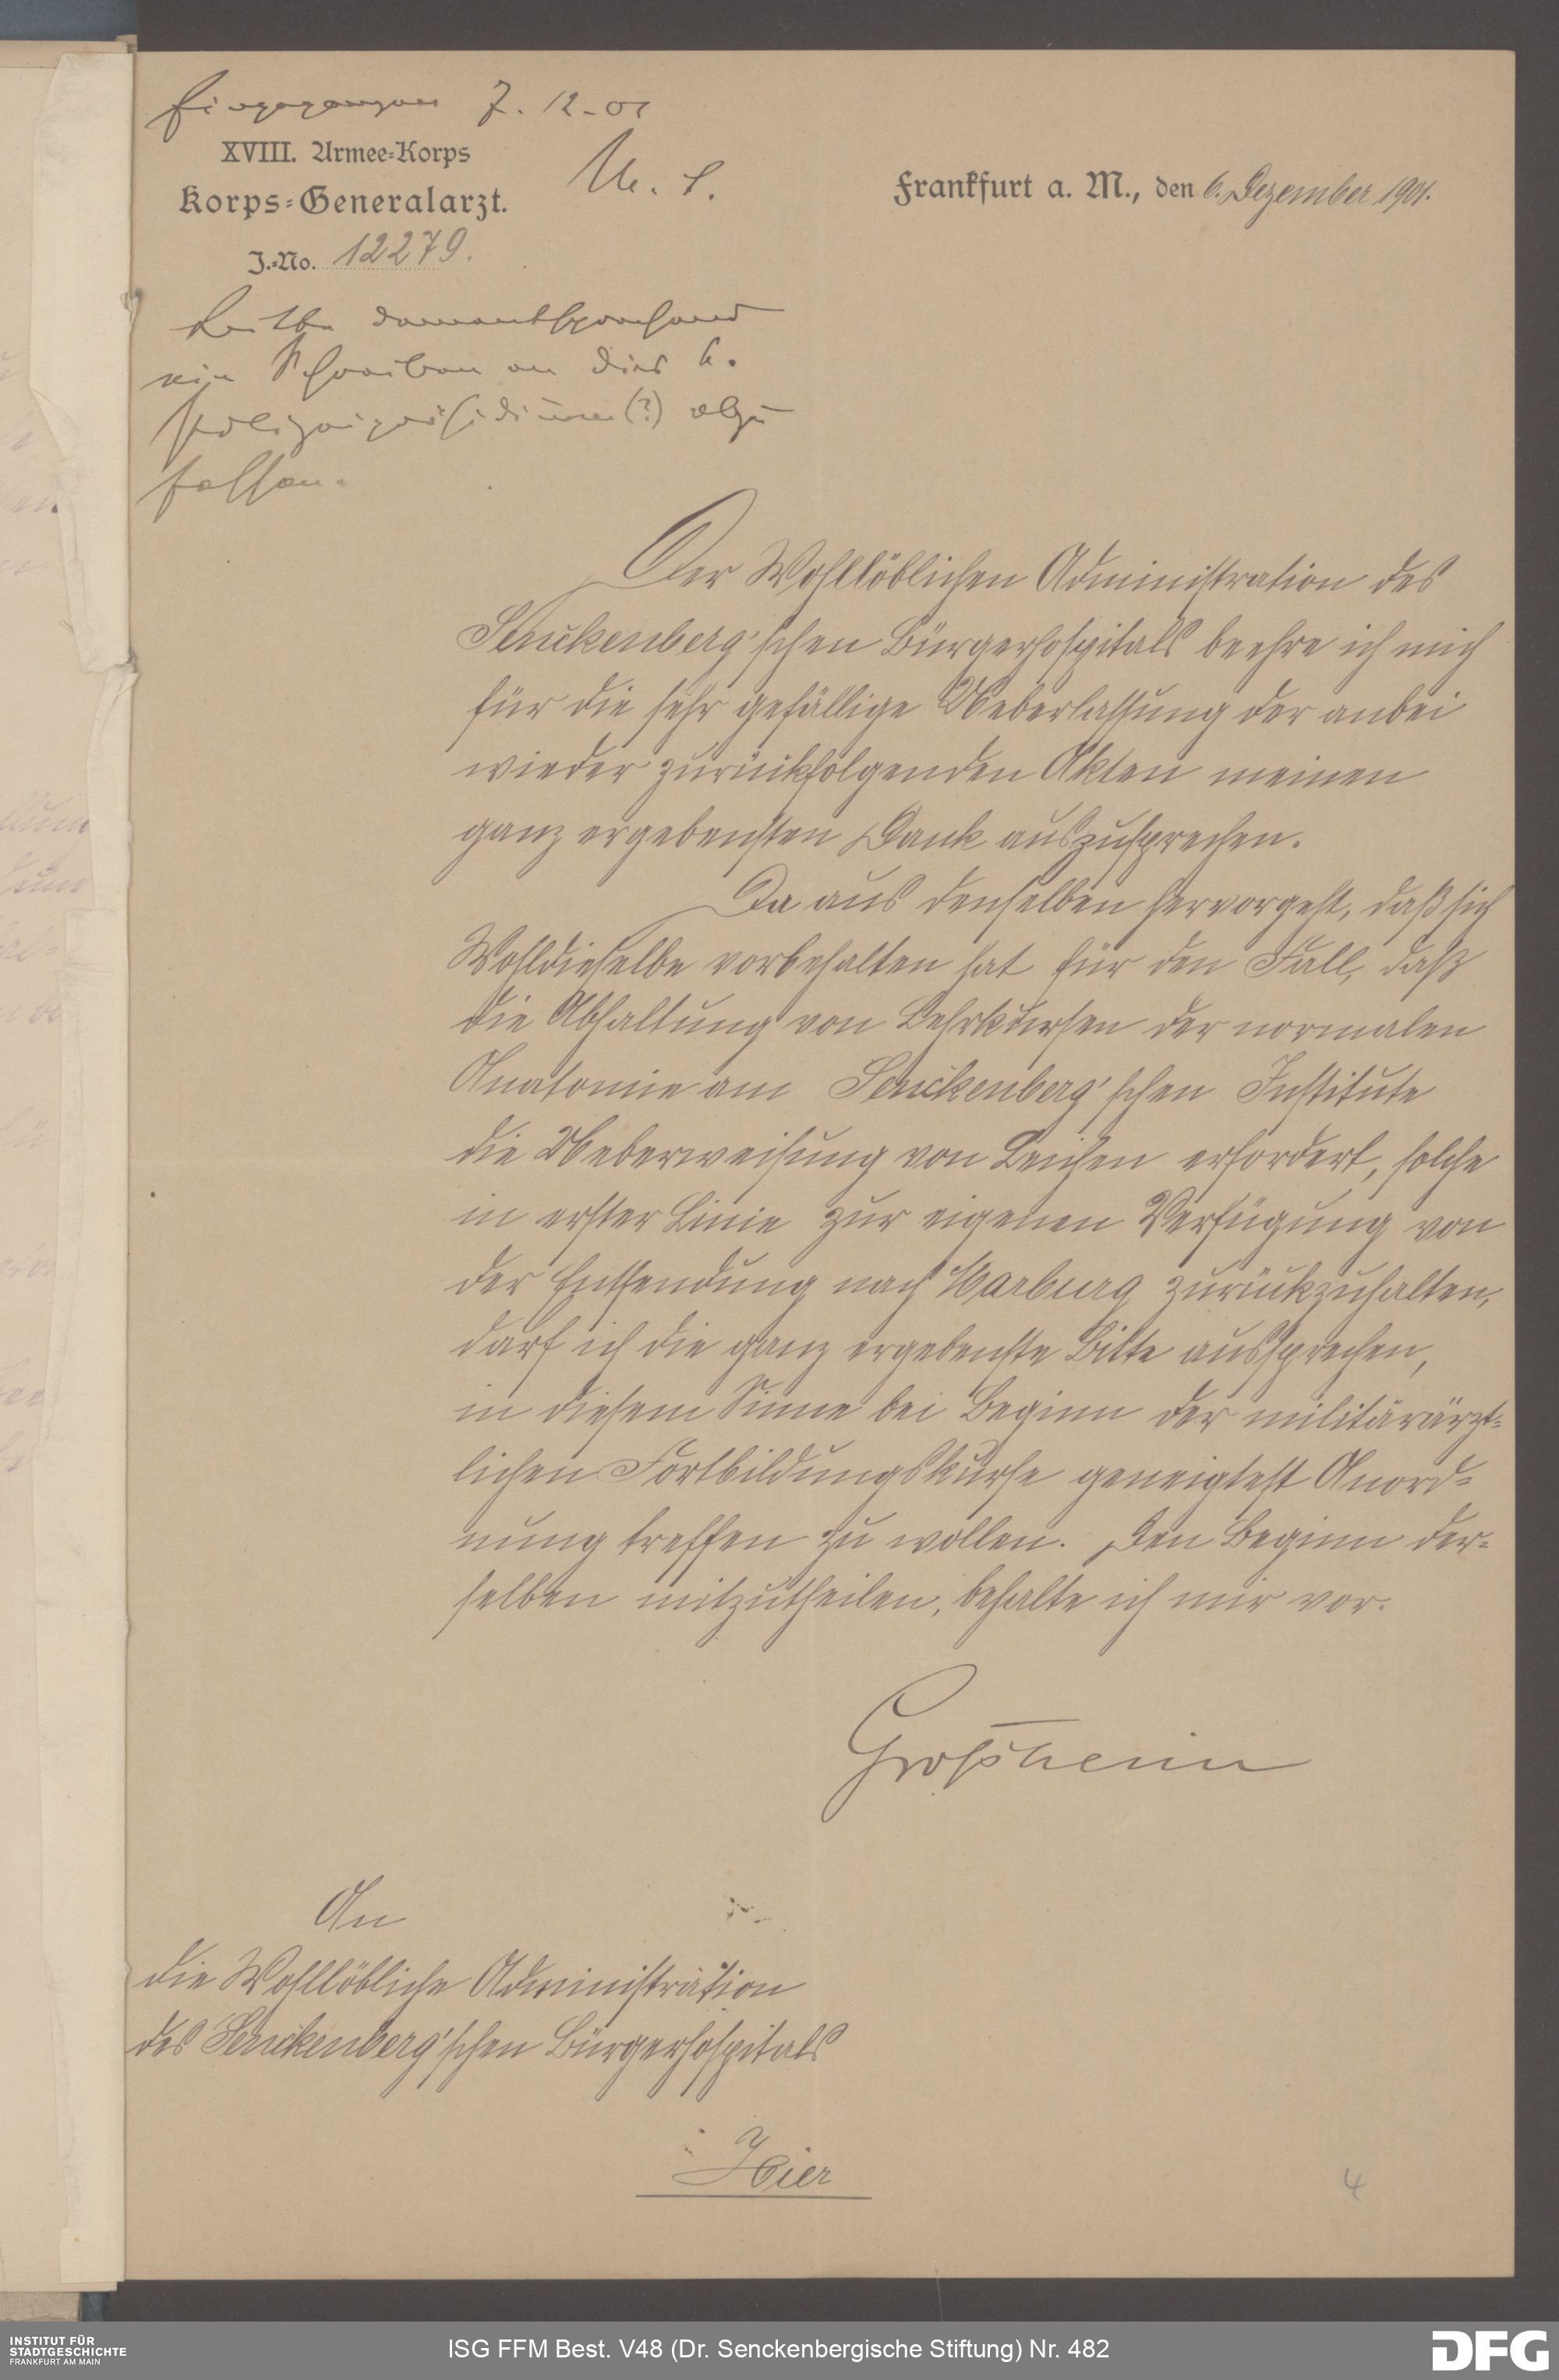 Eingegangen 7. 12-01
XVIII. Armee-Korps
Korps-Generalarzt.
J.-No. 12279.
Frankfurt a. M., den 6. Dezember 1901.
ein Schreiben an das K.
Polizeipräsidium(?) abzu
fassen.
Der Wohllöblichen Administration des
Senckenberg'schen Bürgerhospitals beehre ich mich
für die sehr gefällige Ueberlassung der anbei
wieder zurückfolgenden Akten meinen
ganz ergebensten Dank auszusprechen.
Da aus denselben hervorgeht, daß sich
Wohldieselbe vorbehalten hat für den Fall, daß
die Abhaltung von Lehrkursen der normalen
Anatomie am Senckenberg'schen Institute
die Ueberweisung von Leichen erfordert, solche
in erster Linie zur eigenen Verfügung von
der Entsendung nach Marburg zurückzuhalten,
darf ich die ganz ergebenste Bitte aussprechen,
in diesem Sinne bei Beginn der militärärzt-
lichen Fortbildungskurse geneigtest Anord-
nung treffen zu wollen. Den Beginn der-
selben mitzutheilen, behalte ich mir vor.
Großheim
An
die Wohllöbliche Administration
des Senckenberg'schen Bürgerhospitals
Hier
4
INSTITUT FÜR
STADTGESCHICHTE
FRANKFURT AM MAIN
ISG FFM Best. V48 (Dr. Senckenbergische Stiftung) Nr. 482
DFG